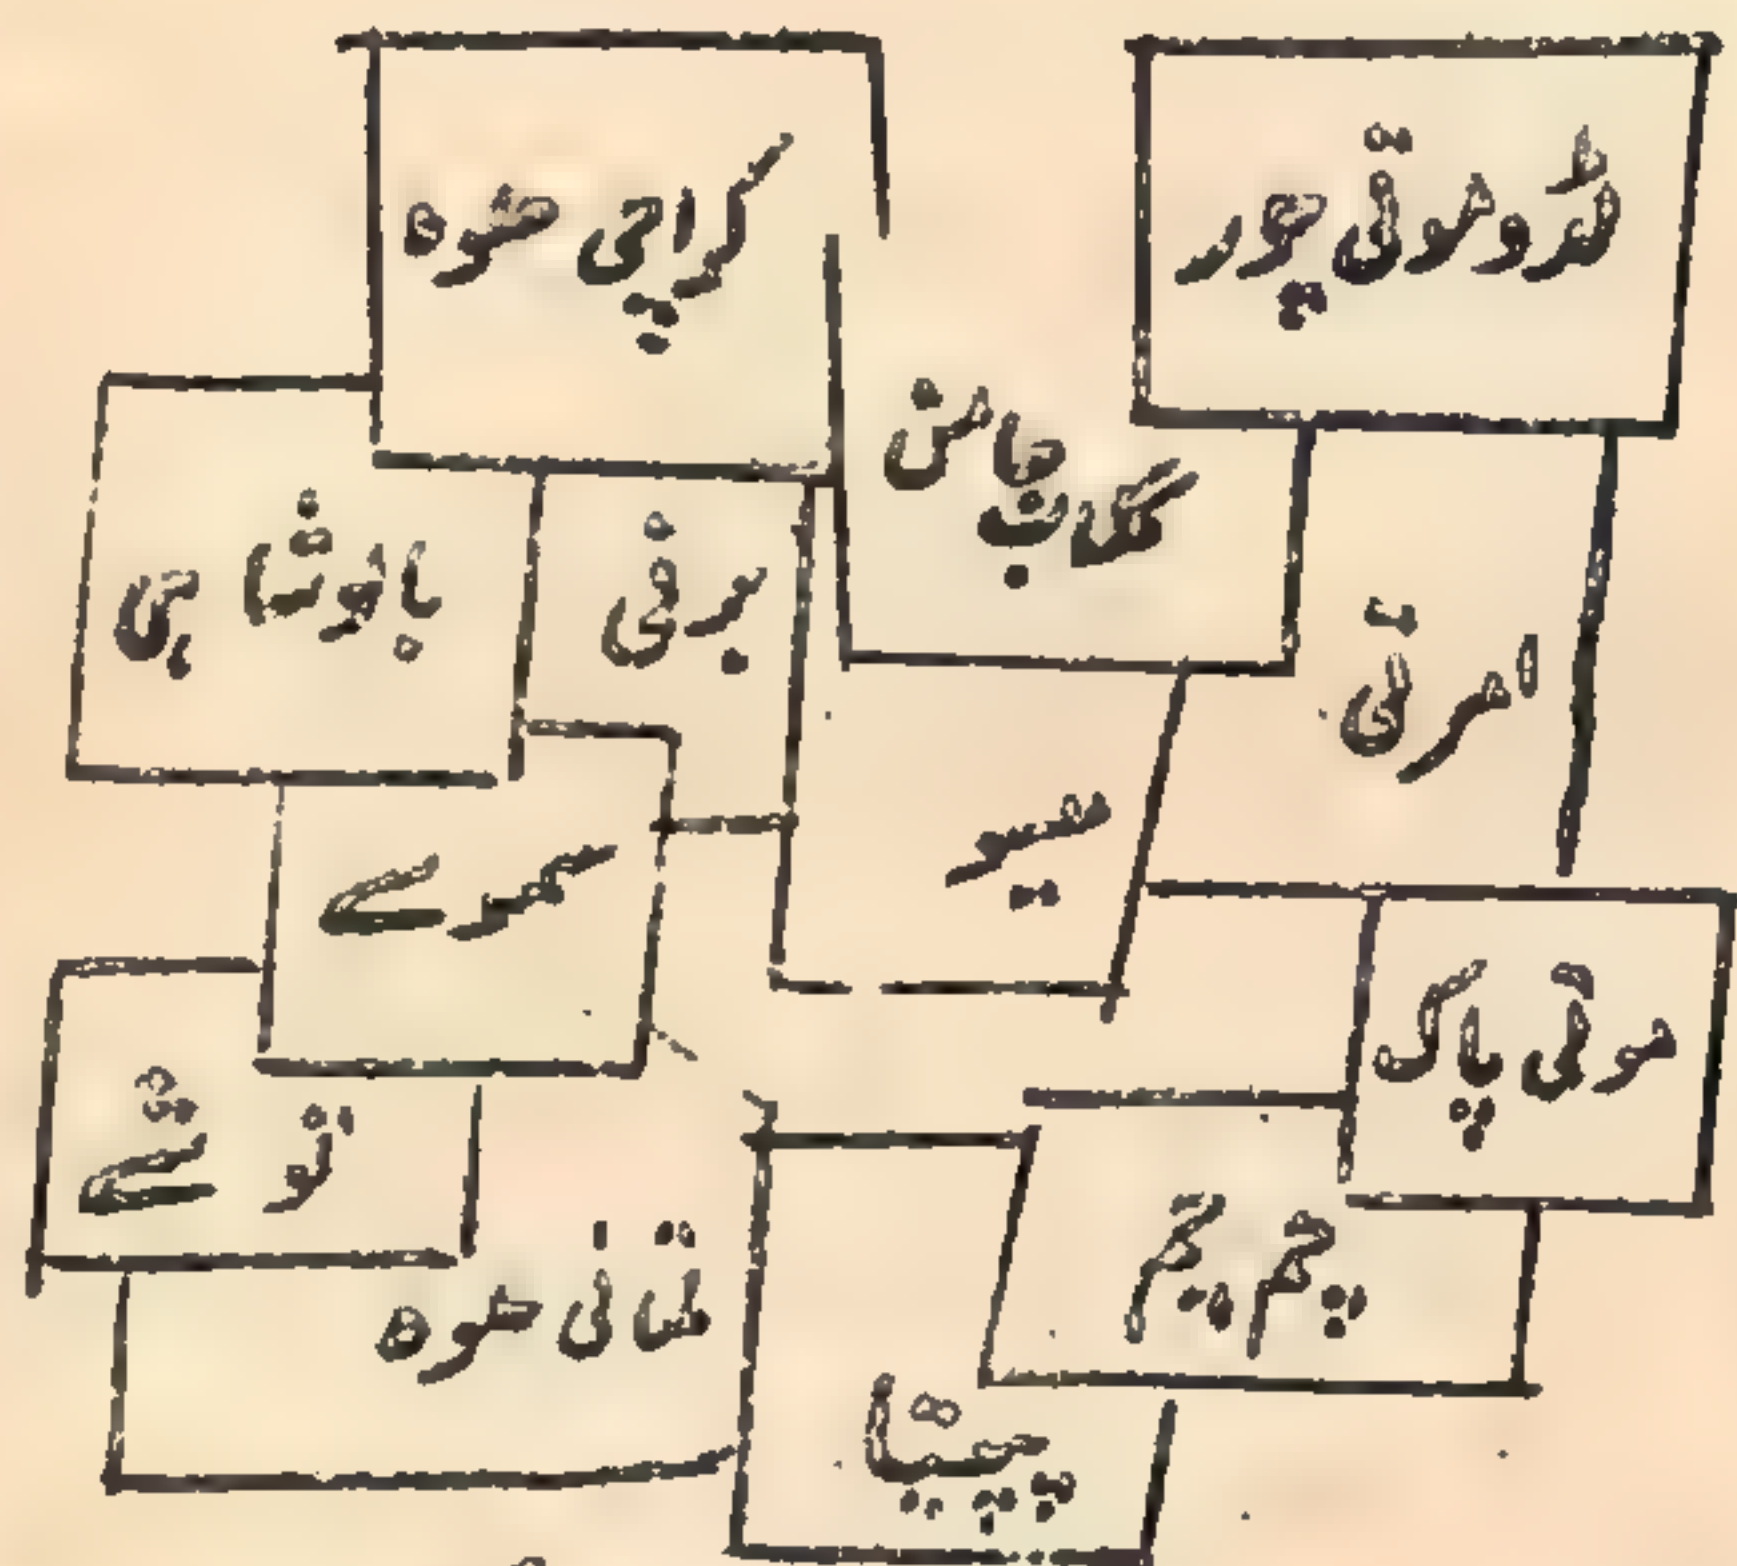 لڈو موتی چور
کراچی حلوہ
گلاب جامن
بالوشاہی
برفی
امرتی
سیو
موتی پاک
چم چم
ملتانی حلوہ